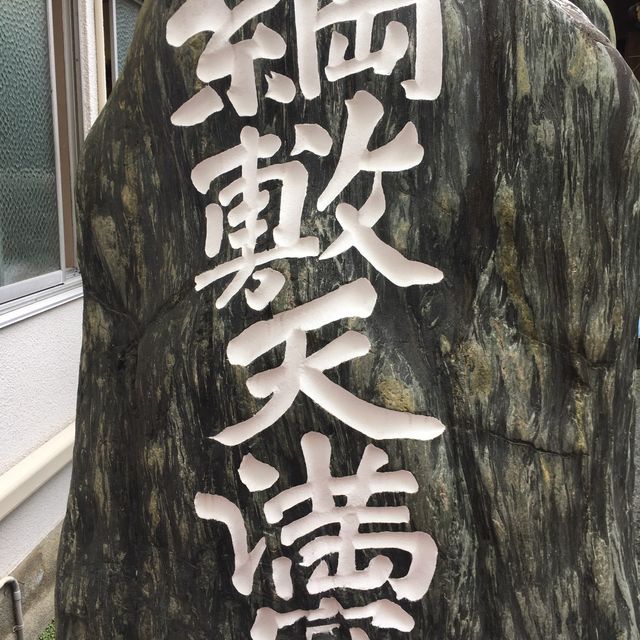 綱敷天満